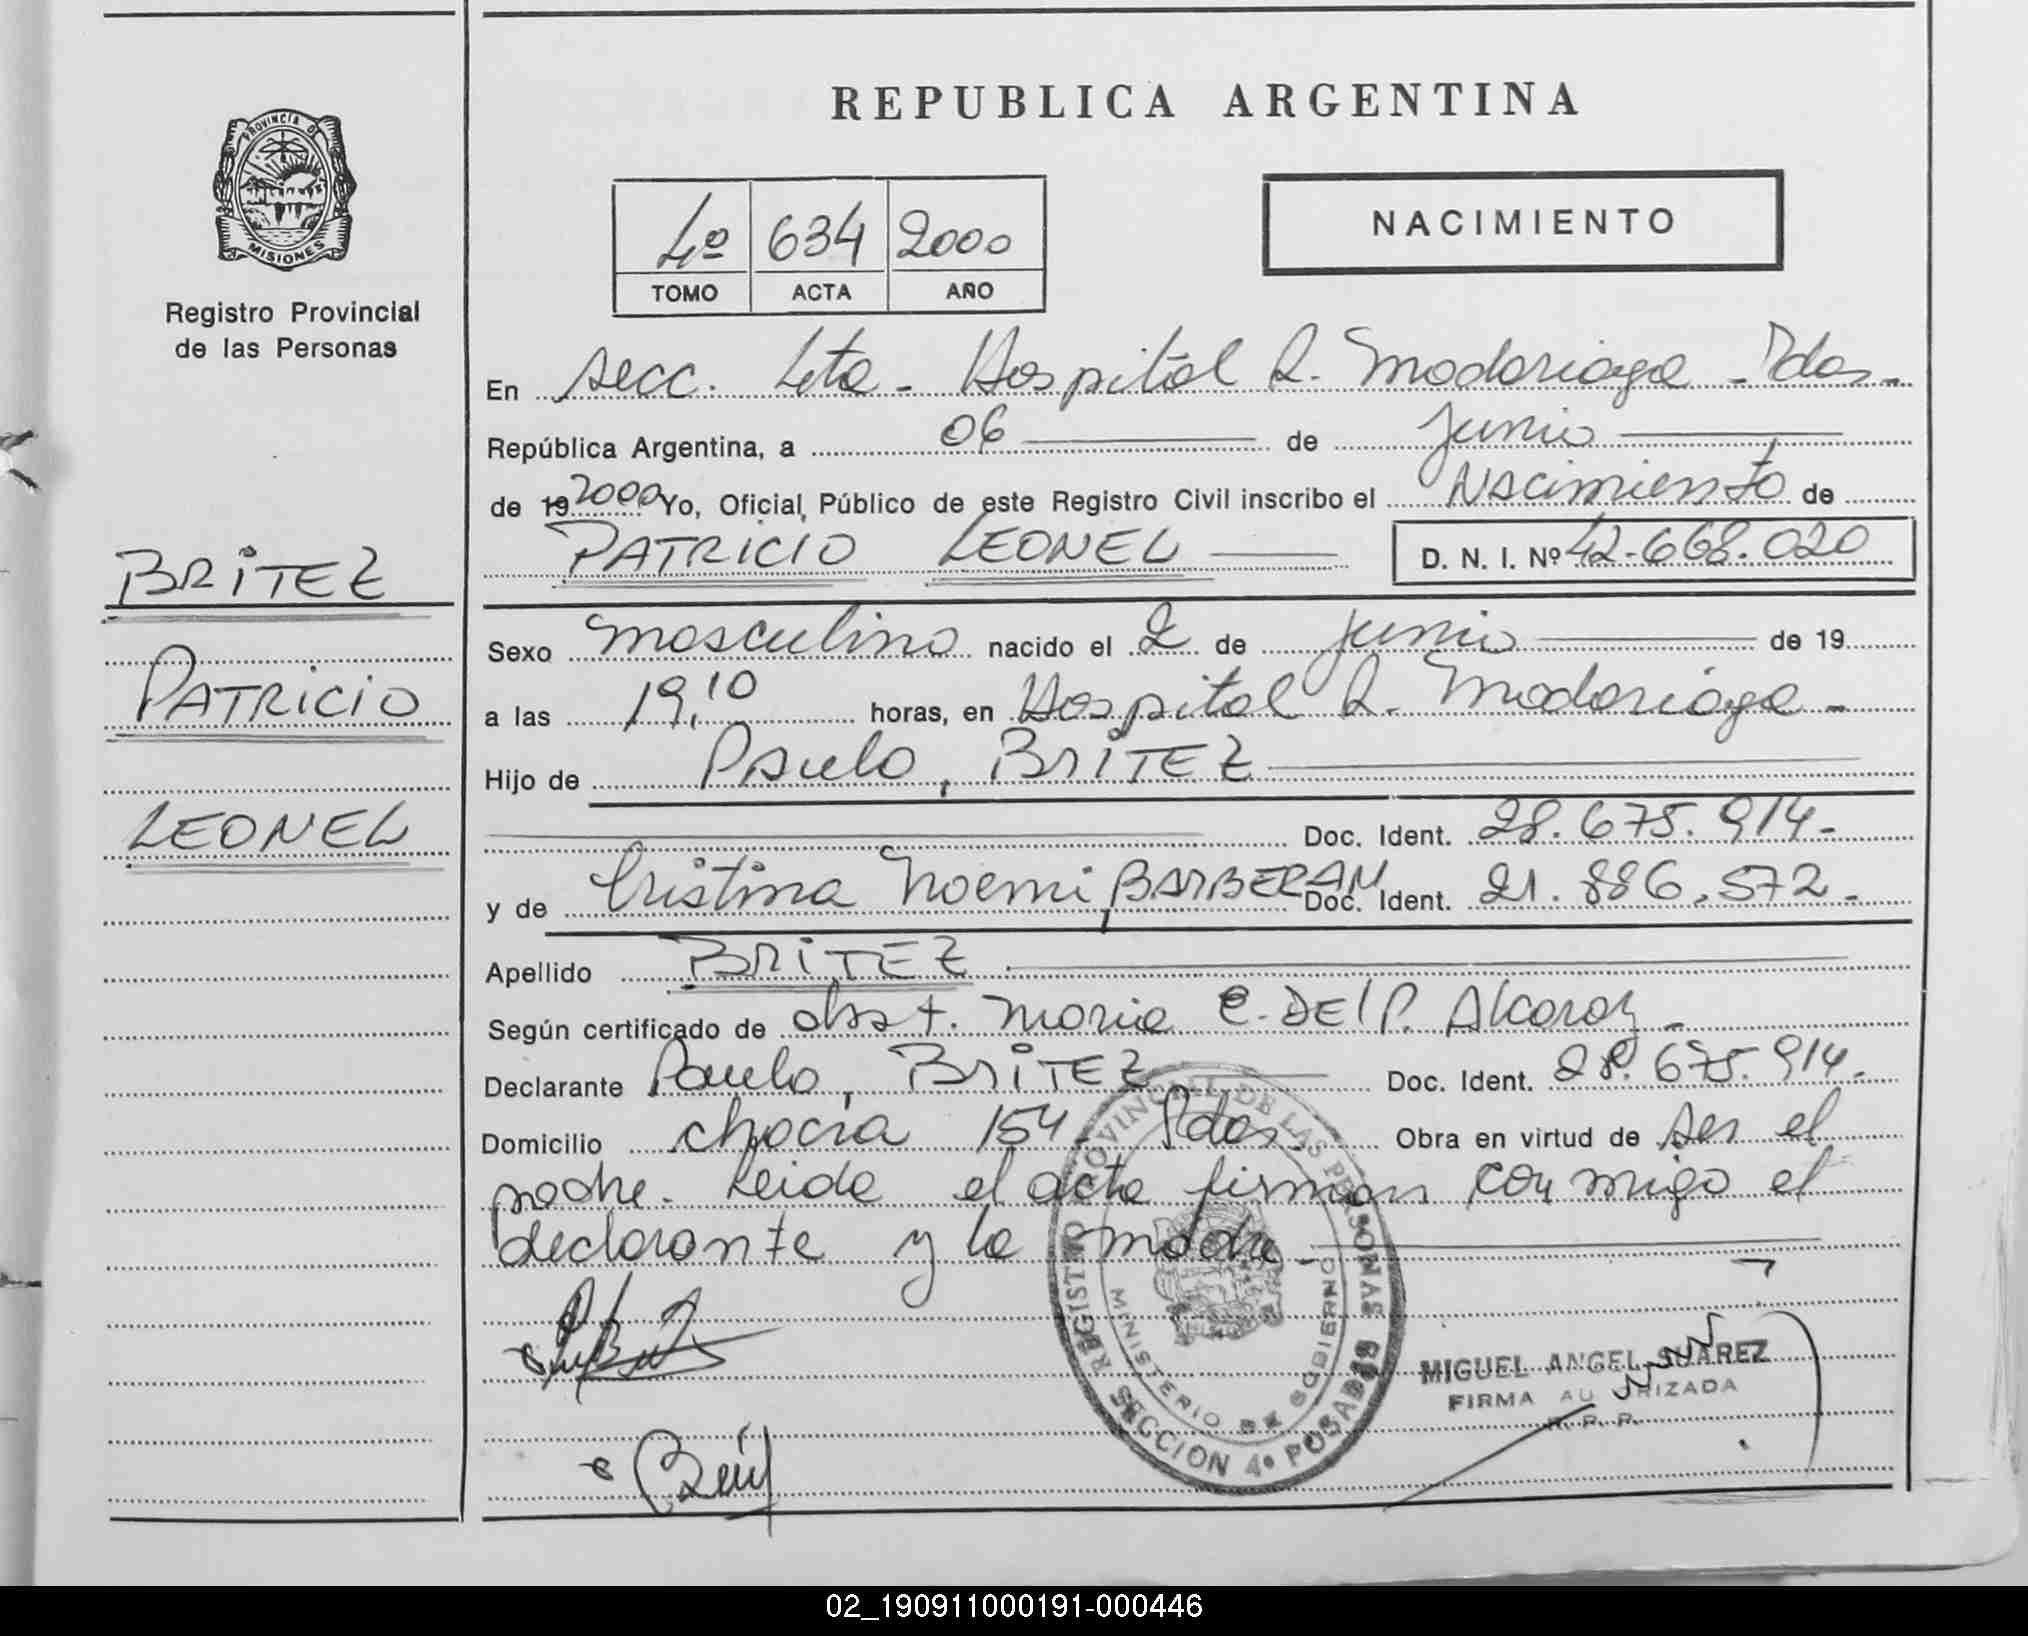 REPUBLICA ARGENTINA
PROVINCIA DE
MISIONES
Registro Provincial
de las Personas
4º 634 2000
TOMO ACTA AÑO
NACIMIENTO
En secc. 4ta - Hospital R. Madariaga - Pdas -
República Argentina, a 06 de Junio
de 19 2000 Yo, Oficial Público de este Registro Civil inscribo el Nacimiento de
PATRICIO LEONEL D. N. I. Nº 42.668.020
BRITEZ
PATRICIO
LEONEL
Sexo masculino nacido el 2 de junio de 19
a las 19,10 horas, en Hospital R. Madariaga -
Hijo de Paulo, BRITEZ
Doc. Ident. 28.675.914-
y de Cristina Noemi, BARBERAN Doc. Ident. 21.886.572-
Apellido BRITEZ
Según certificado de obst. Maria E. DEl P. Alcaraz -
Declarante Paulo, BRITEZ Doc. Ident. 28.675.914-
Domicilio chacra 154 - Pdas. Obra en virtud de ser el
padre. Leida el acta firman conmigo el
declarante y la madre
REGISTRO PROVINCIAL DE LAS PERSONAS
MINISTERIO DE GOBIERNO
SECCION 4º POSADAS
MIGUEL ANGEL SUAREZ
FIRMA AUTORIZADA
R. P. P.
02_190911000191-000446